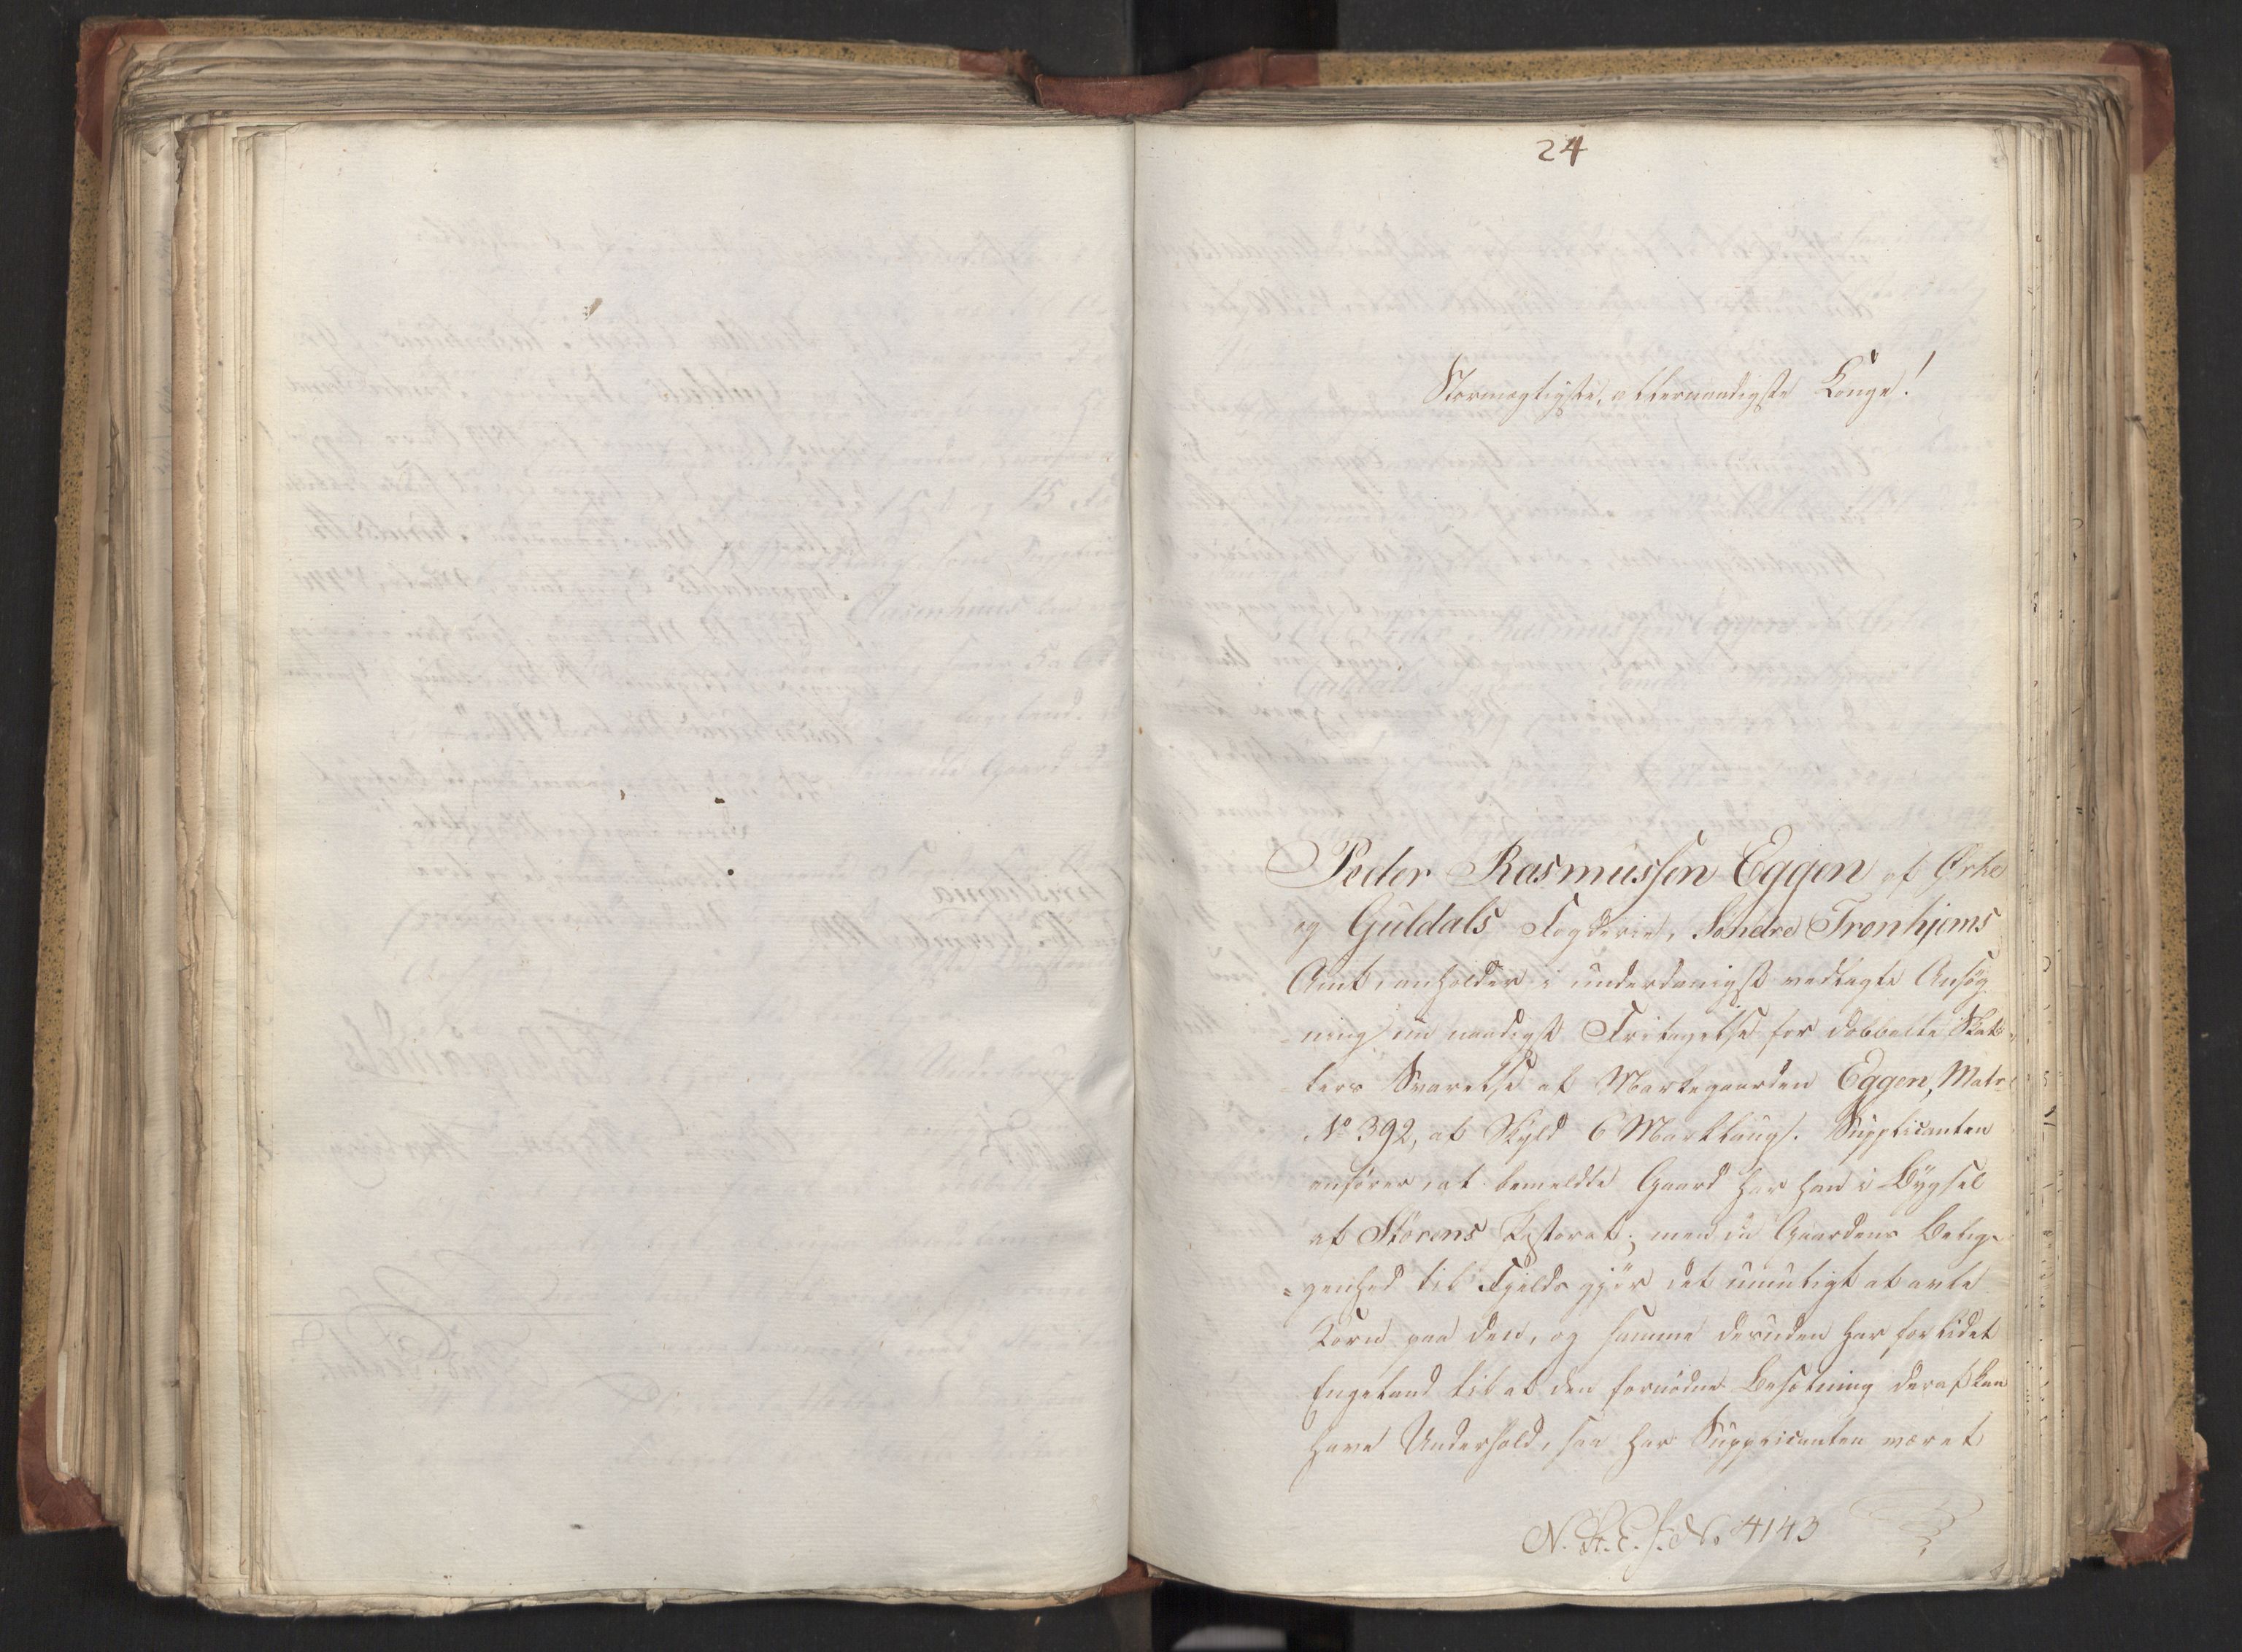 24
Stormægtigste, allernaadigste Konge!
Peder Rasmussen Eggen af Ørke
og Guldals Fogderie, Søndre Tronhjems
Amt, anholder i underdanigst vedlagte Ansøg
-ning om naadigst Fritagelse for dobbelte Skat-
-ters Svarelse af Markegaarden Eggen, Matr:
No 392, af Skyld 6 Marklaug. Supplicanten
anfører, at bemeldte Gaard har han i Bygsel
af Størens Pastorat; men da Gaardens Belig-
=genhed til Fjelds gjør det umuligt at avle
Korn paa den, og samme desuden har for lidet
Engeland til at den fornødne Besætning deraf kan
have Underhold, saa har Supplicanten været
N. St. E. J. No 4143